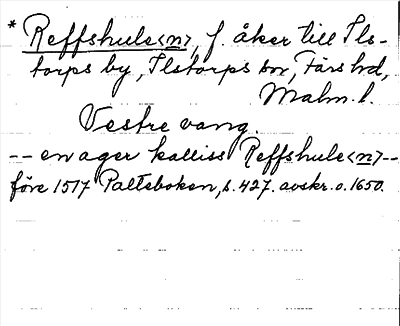 * Reffshule<n>, f. åker till Ils-
torps by, Ilstorps sn, Färs hd,
Malm. l.
Vestre vang.
-- en ager kalliss Reffshule<n> --
före 1517 Palteboken, s. 427. avskr. o. 1650.